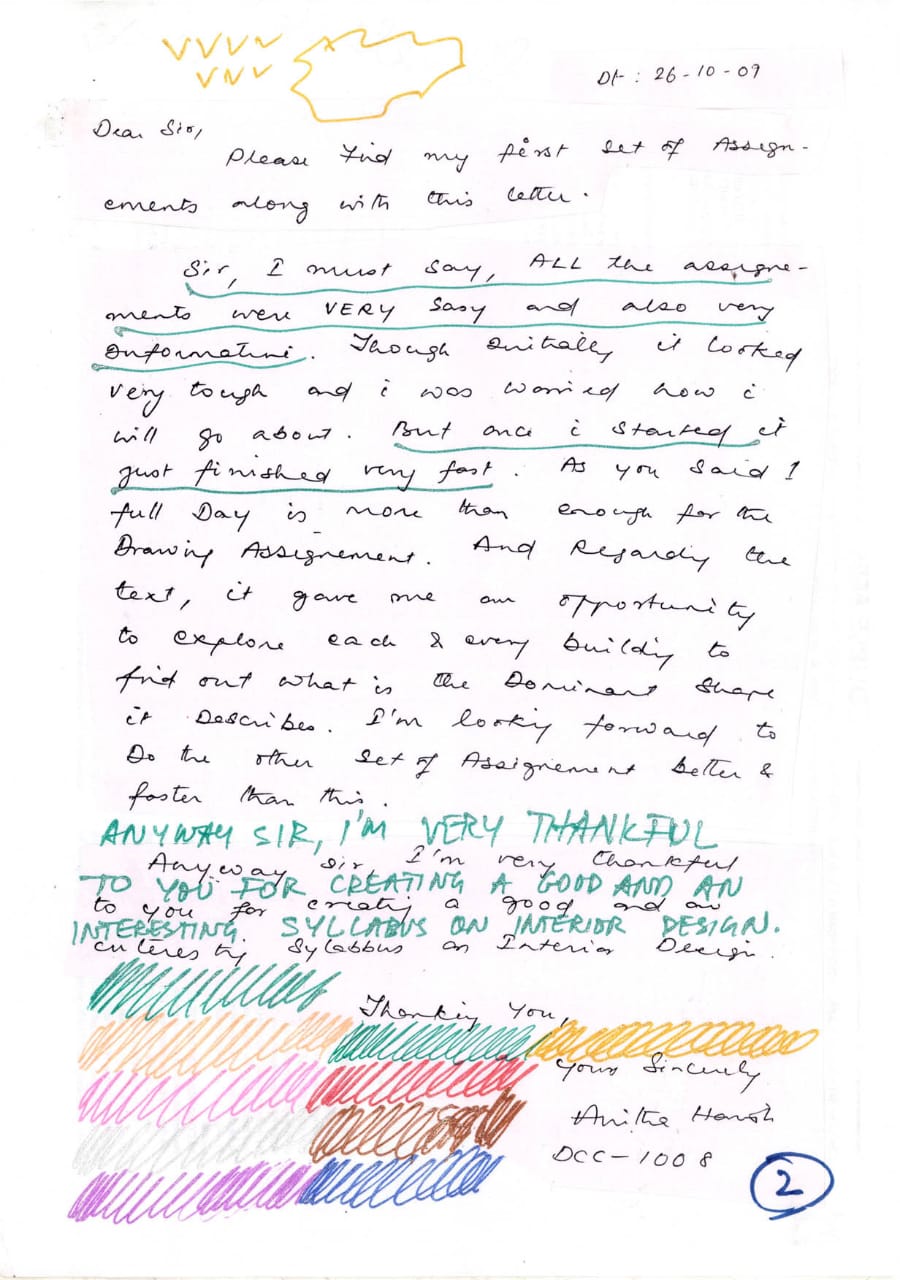 Dt : 26-10-09
Dear Sir,
Please find my first set of Assign-
ements along with this letter.
Sir, I must say, ALL the assigne-
ments were VERY Easy and also very
Informative. Though Initially it looked
very tough and i was worried how i
will go about. But once i started it
just finished very fast. As you said 1
full Day is more than enough for the
Drawing Assignement. And Regarding the
text, it gave me an opportunity
to explore each & every building to
find out what is the Dominant Shape
it Describes. I'm looking forward to
Do the other set of Assignement better &
faster than this.
ANYWAY SIR, I'M VERY THANKFUL
Anyway Sir, I'm very thankful
TO YOU FOR CREATING A GOOD AND AN
to you for creating a good and an
INTERESTING SYLLABUS ON INTERIOR DESIGN.
interesting Sylabbus on Interior Design.
Thanking You,
Yours Sincerely
Anitha
DCC-1008
2